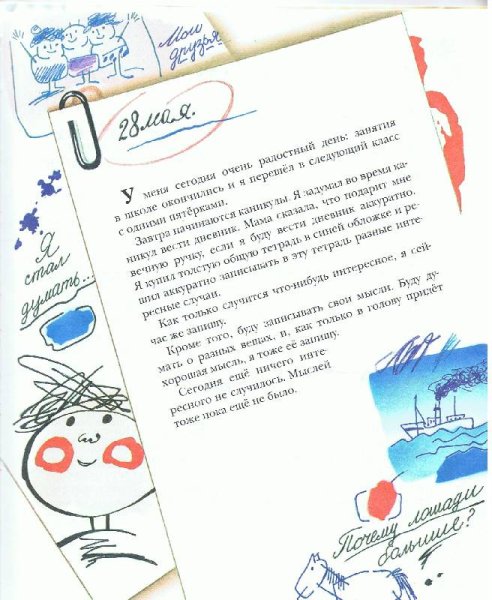 Мои
друзья
28 мая.
У меня сегодня очень радостный день: занятия
в школе окончились и я перешёл в следующий класс
с одними пятёрками.
Завтра начинаются каникулы. Я задумал во время ка-
никул вести дневник. Мама сказала, что подарит мне
вечную ручку, если я буду вести дневник аккуратно.
Я купил толстую общую тетрадь в синей обложке и ре-
шил аккуратно записывать в эту тетрадь разные инте-
ресные случаи.
Как только случится что-нибудь интересное, я сей-
час же запишу.
Кроме того, буду записывать свои мысли. Буду ду-
мать о разных вещах, и, как только в голову придёт
хорошая мысль, я тоже её запишу.
Сегодня ещё ничего инте-
ресного не случилось. Мыслей
тоже пока ещё не было.
Я
стал
думать...
Почему лошади
большие?